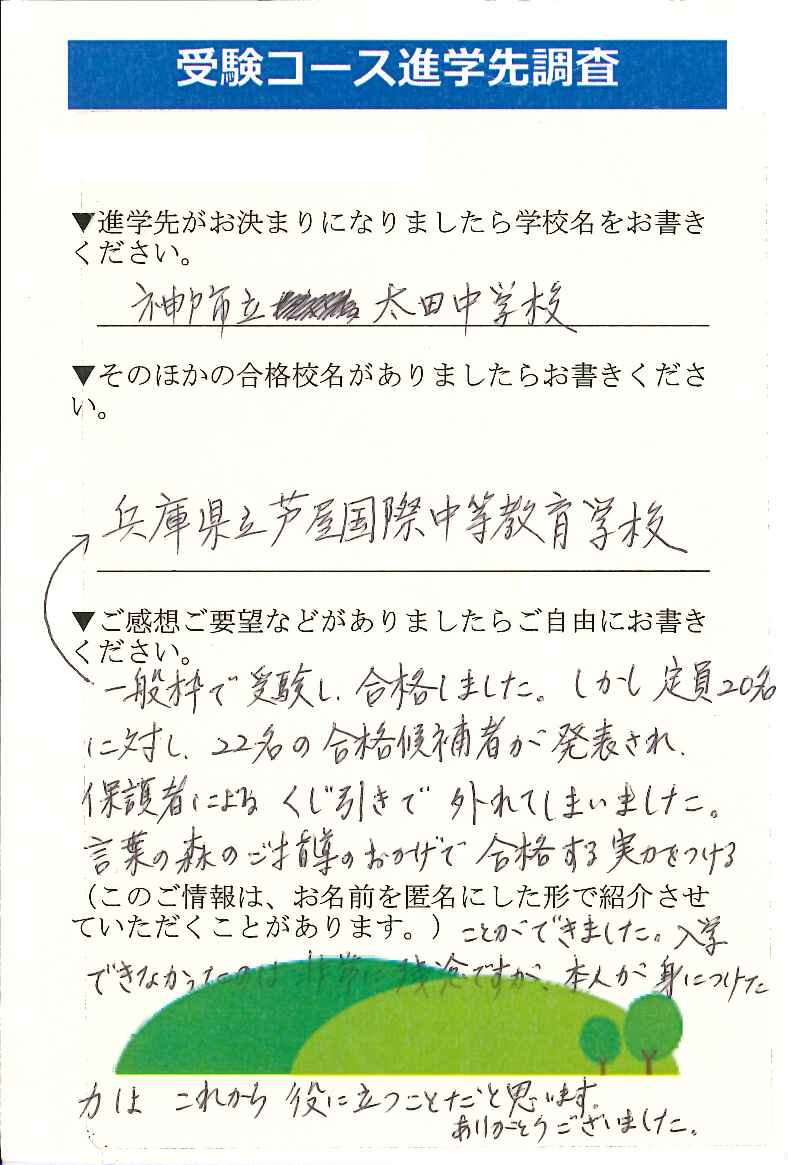 受験コース進学先調査
▼進学先がお決まりになりましたら学校名をお書き
ください。
神戸市立 太田中学校
▼そのほかの合格校名がありましたらお書きくださ
い。
兵庫県立芦屋国際中等教育学校
▼ご感想ご要望などがありましたらご自由にお書き
ください。
一般枠で受験し、合格しました。しかし定員20名
に対し、22名の合格候補者が発表され、
保護者によるくじ引きで外れてしまいました。
言葉の森のご指導のおかげで合格する実力をつける
（このご情報は、お名前を匿名にした形で紹介させ
ていただくことがあります。）ことができました。入学
できなかったのは非常に残念ですが、本人が身につけた
力はこれから役に立つことだと思います。
ありがとうございました。